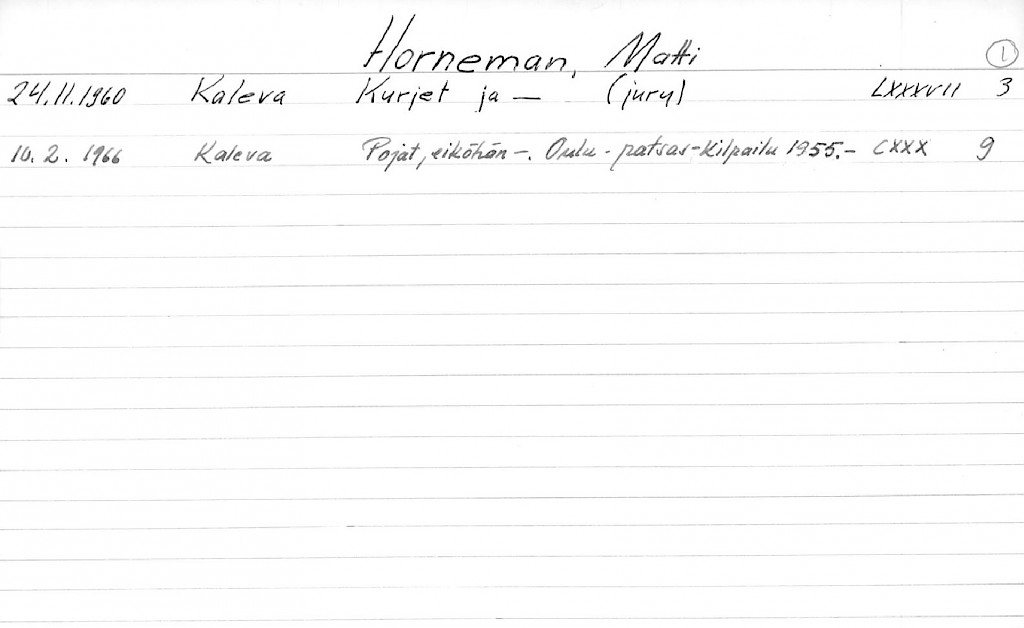 Horneman, Matti 1
24.11.1960 Kaleva Kurjet ja — (jury) LXXXVII 3
10.2.1966 Kaleva Pojat, eiköhän —. Oulu-patsas-kilpailu 1955.— CXXX 9